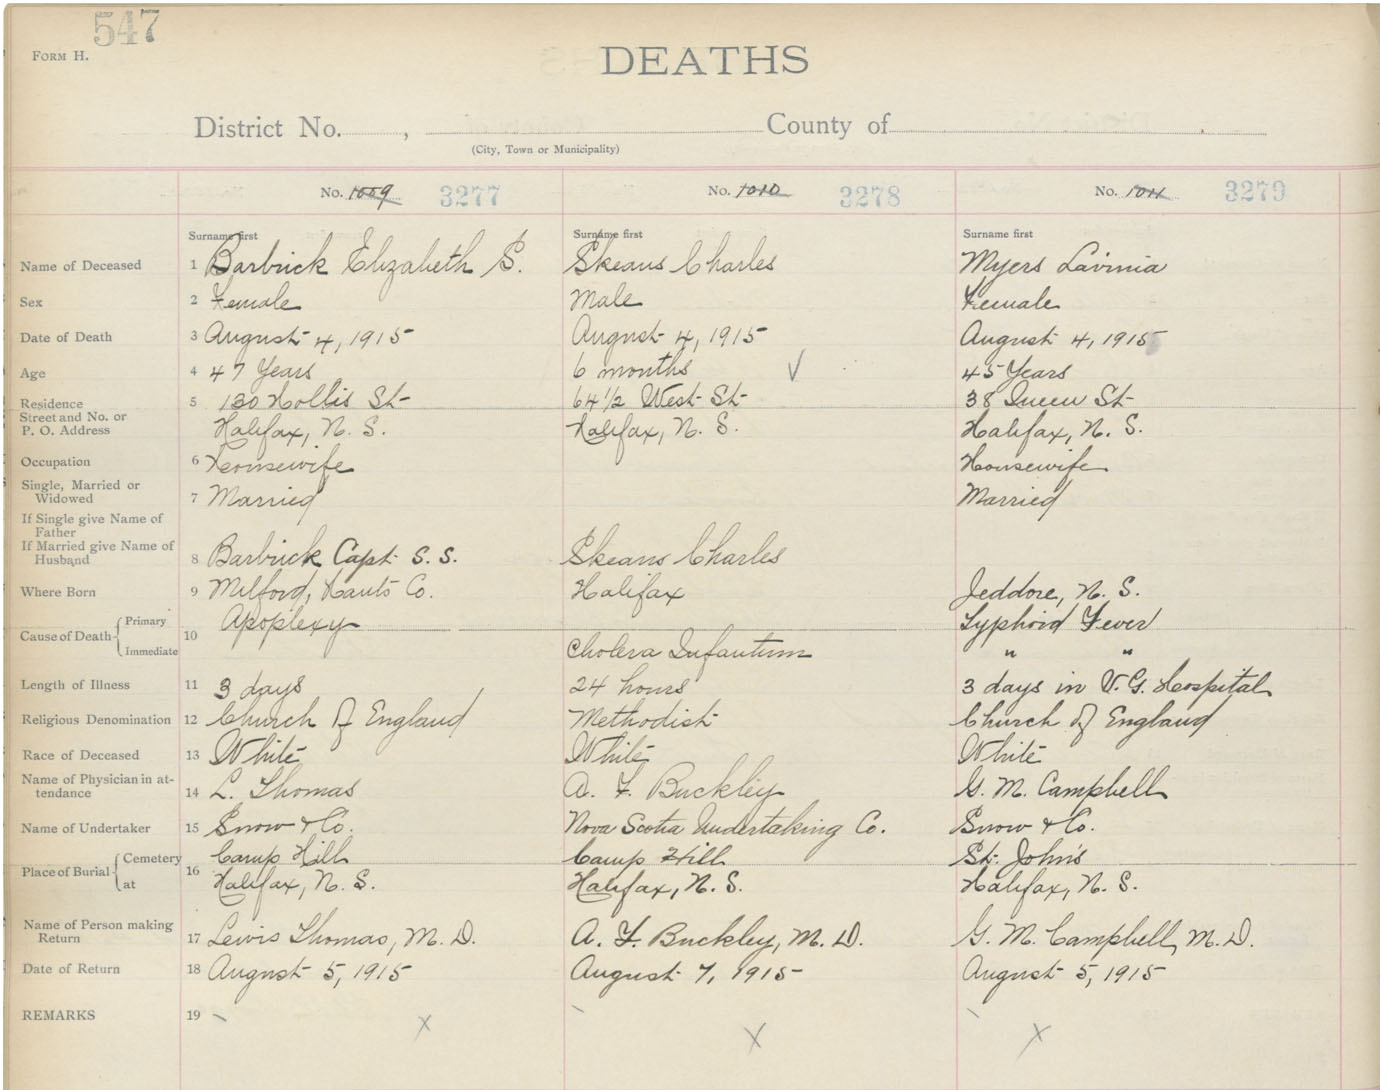 547
FORM H.
DEATHS
District No. , County of
(City, Town or Municipality)
No. 1009 3277 No. 1010 3278 No. 1011 3279
Surname first Surname first Surname first
Name of Deceased 1 Barbrick Elizabeth S. Skeans Charles Myers Lavinia
Sex 2 Female Male Female
Date of Death 3 August 4, 1915 August 4, 1915 August 4, 1915
Age 4 47 Years 6 months √ 45 Years
Residence 5 130 Hollis St 64 1/2 West St 38 Queen St
Street and No. or
P. O. Address Halifax, N. S. Halifax, N. S. Halifax, N. S.
Occupation 6 Housewife Housewife
Single, Married or
Widowed 7 Married Married
If Single give Name of
Father
If Married give Name of
Husband 8 Barbrick Capt S. S. Skeans Charles
Where Born 9 Milford, Hants Co. Halifax Jeddore, N. S.
Cause of Death { Primary 10 Apoplexy Typhoid Fever
Immediate Cholera Infantum " "
Length of Illness 11 3 days 24 hours 3 days in V. G. Hospital
Religious Denomination 12 Church of England Methodist Church of England
Race of Deceased 13 White White White
Name of Physician in at-
tendance 14 L. Thomas A. F. Buckley G. M. Campbell
Name of Undertaker 15 Snow & Co. Nova Scotia Undertaking Co. Snow & Co.
Place of Burial { Cemetery 16 Camp Hill Camp Hill St. John's
at Halifax, N. S. Halifax, N. S. Halifax, N. S.
Name of Person making
Return 17 Lewis Thomas, M. D. A. F. Buckley, M. D. G. M. Campbell, M. D.
Date of Return 18 August 5, 1915 August 7, 1915 August 5, 1915
REMARKS 19 X X X